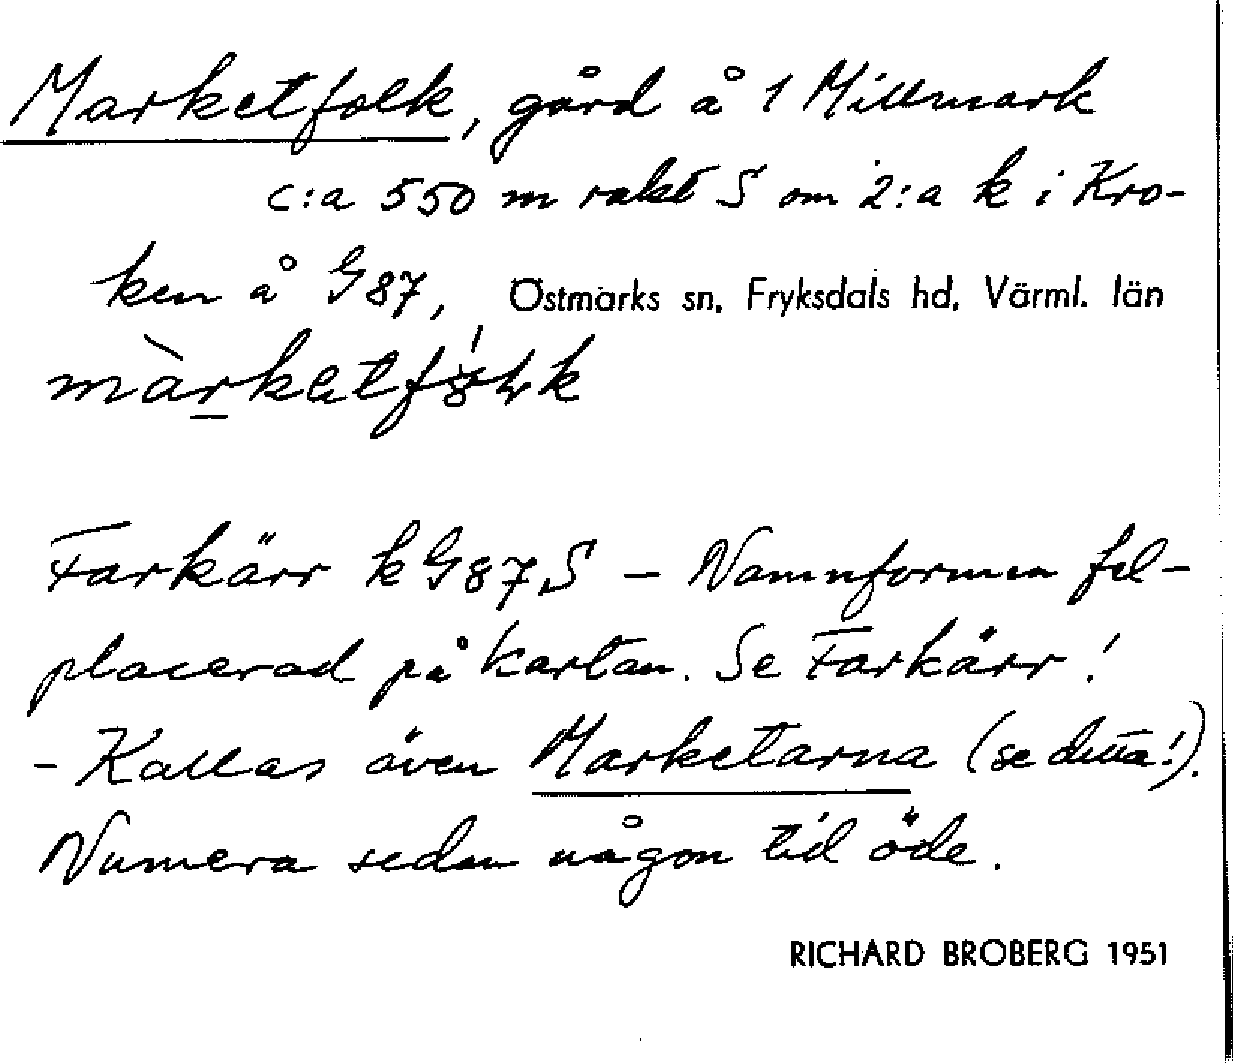 Marketfolk, gård å 1 Millmark
c:a 550 m rakt S om 2:a k i Kro-
ken å G87, Östmarks sn, Fryksdals hd, Värml. län
Farkärr k G87S – Namnformen fel-
placerad på kartan. Se Farkärr!
- Kallas även Marketarna (se detta!).
Numera sedan någon tid öde.
RICHARD BROBERG 1951